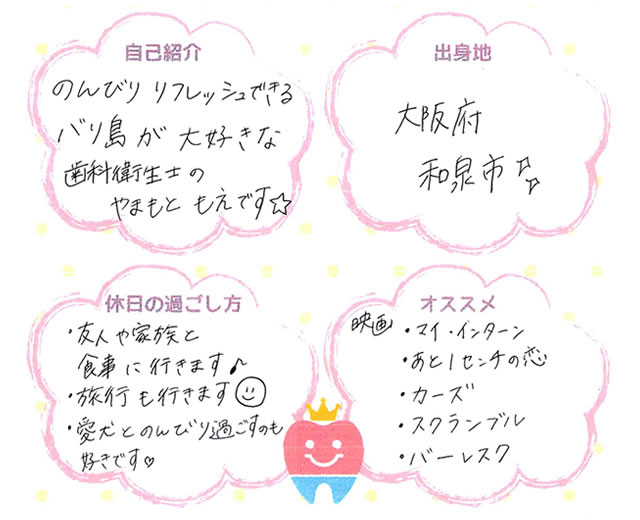 自己紹介
のんびり リフレッシュできる
バリ島が 大好きな
歯科衛生士の
やまもと もえです☆
出身地
大阪府
和泉市☆☆
休日の過ごし方
・友人や家族と
食事に行きます♪
・旅行も行きます☺
・愛犬とのんびり過ごすのも
好きです♡
オススメ
映画 ・マイ・インターン
・あと1センチの恋
・カーズ
・スクランブル
・バーレスク